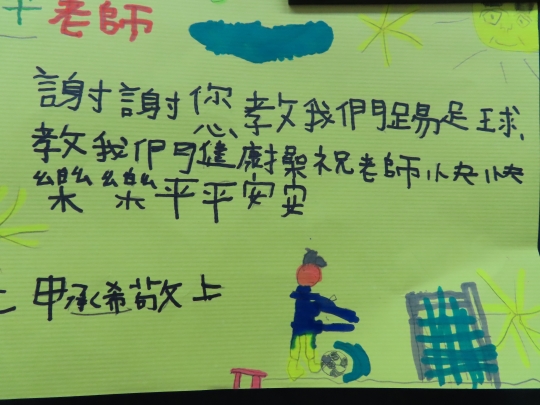 老師
謝謝您教我們踢足球、
教我們健操祝老師快快
樂樂平平安安
申承希敬上